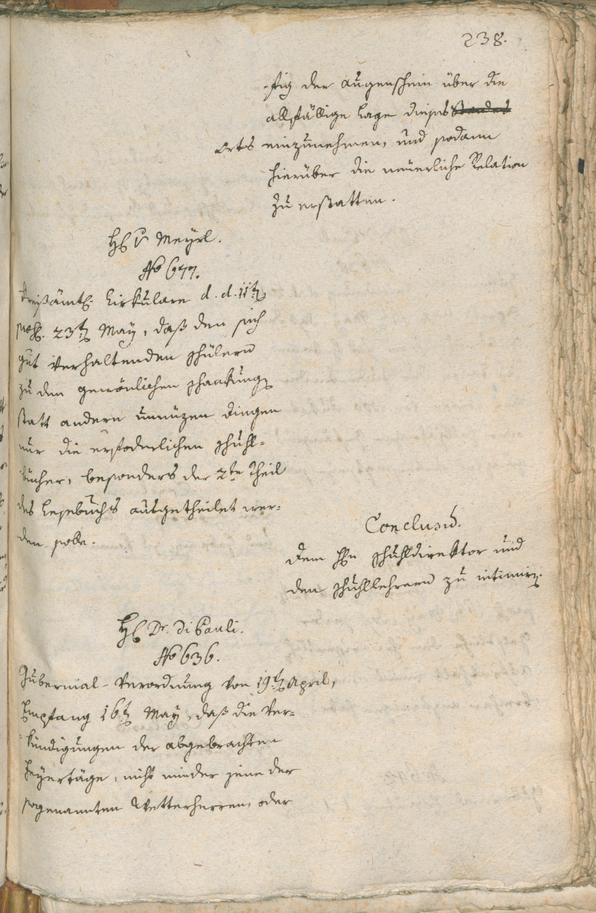 238.
stig der Augenschein über die
allfällige Lage dieses
Orts einzunehmen, und sodann
hierüber die neuerliche Relation
zu erstatten.
H. v Meyrl.
No 677.
Kreißämtl. Zirkulare d. d. 11t
pres. 23t May, daß den sich
gut verhaltenden schülern
zu den gewönlichen schankung
statt andern unnüzen dingen
nur die erfoderlichen schuhl-
bücher, besonders der 2te Theil
des Lesebuchs ausgetheilet wer-
den solle.
Conclusum.
Dem Hrn schuhldirektor und
den schuhllehrern zu intimir.
H. Dr. Di Pauli.
No 636.
Gubernial-Verordnung von 19t April,
Empfang 16t May, daß die Ver-
kündigungen der abgebrachten
Feyertäge, nicht minder jene der
sogenannten Wetterherren, oder